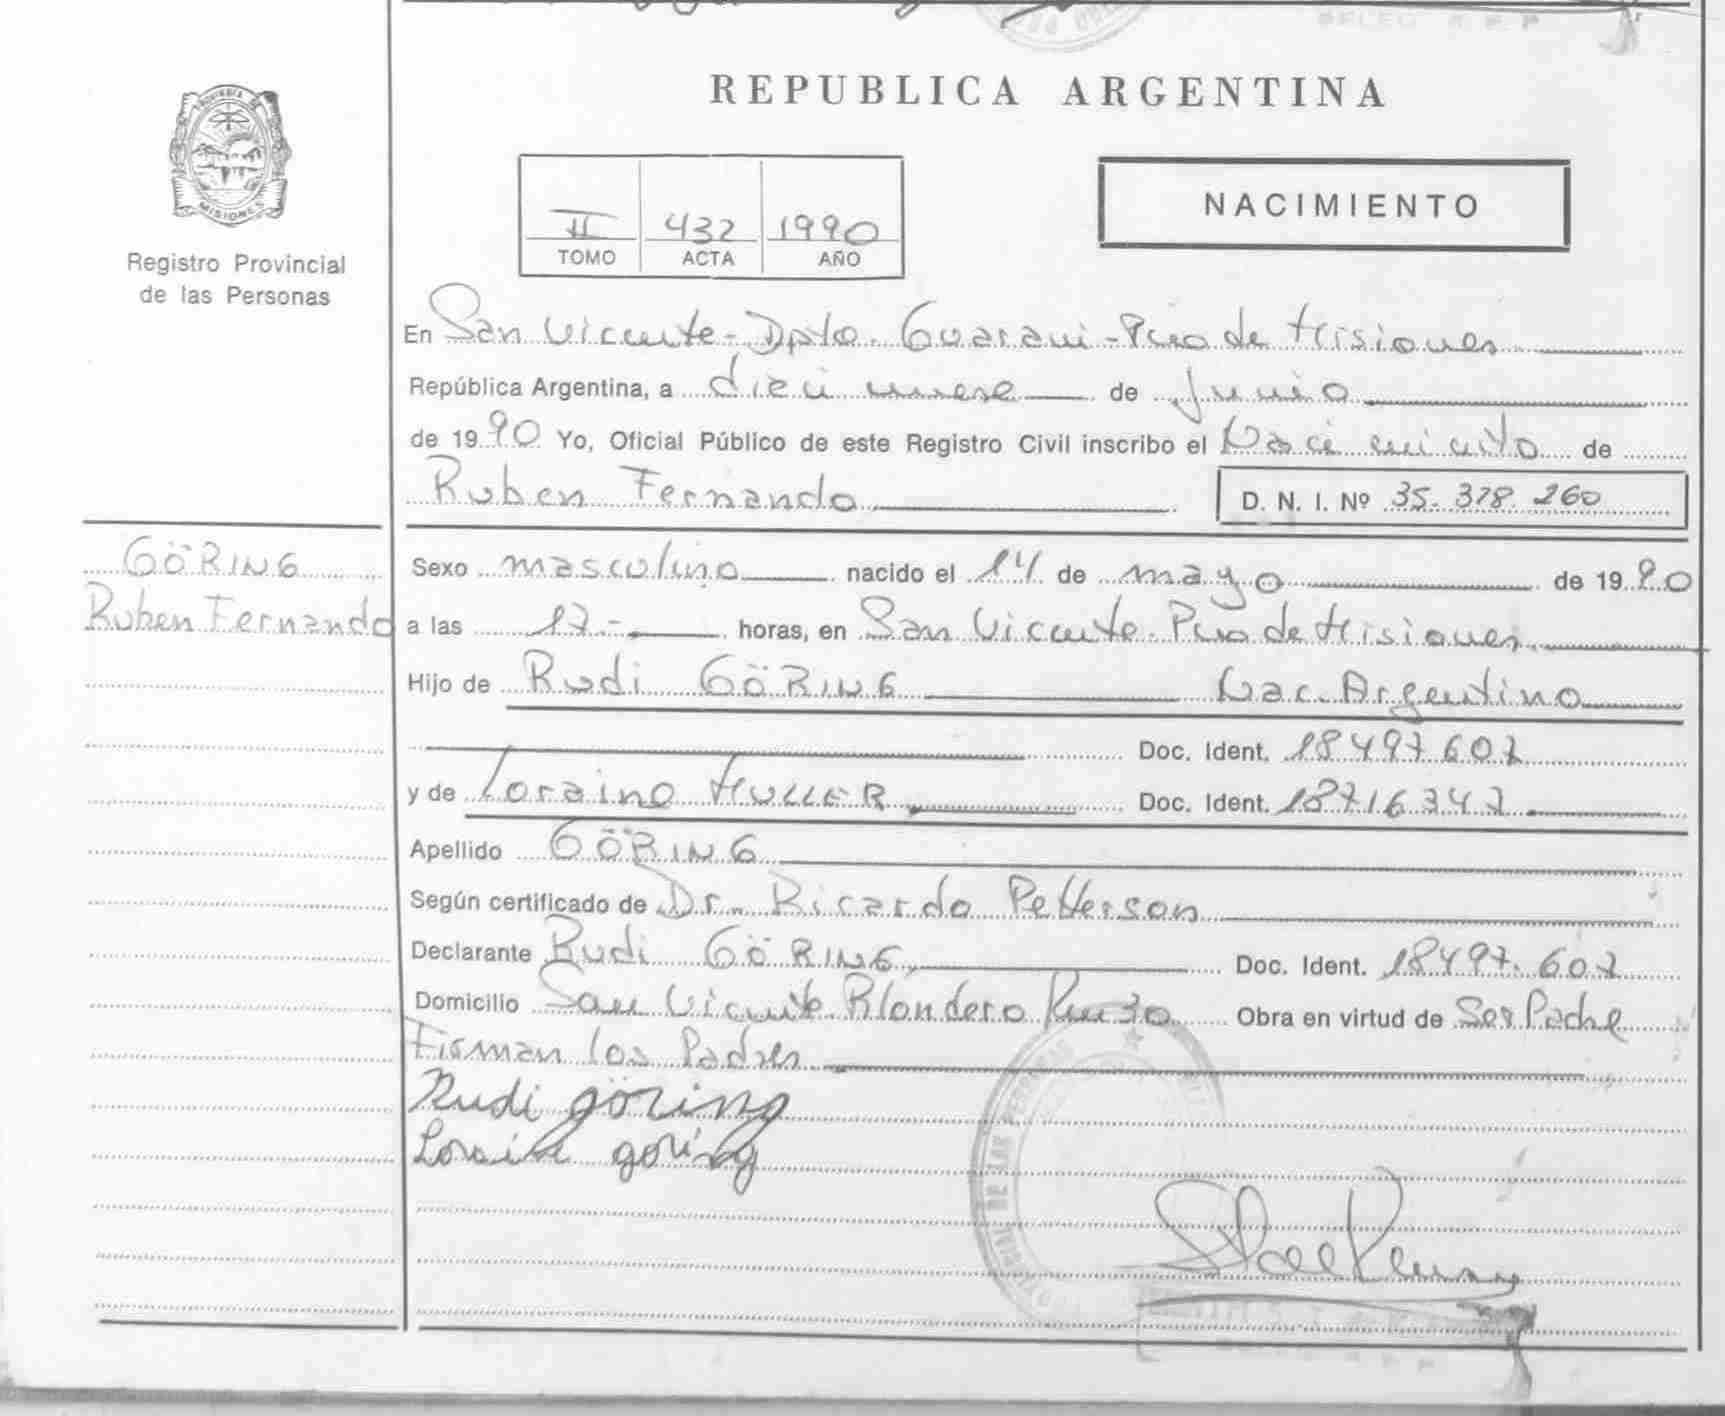 REPUBLICA ARGENTINA
PROVINCIA DE
MISIONES
Registro Provincial
de las Personas
II 432 1990
TOMO ACTA AÑO
NACIMIENTO
En San Vicente - Dpto. Guarani - Pcia de Misiones
República Argentina, a diecinueve de Junio
de 1990 Yo, Oficial Público de este Registro Civil inscribo el Nacimiento de
Ruben Fernando D. N. I. Nº 35.378.260
GÖRING
Ruben Fernando
Sexo masculino nacido el 14 de mayo de 1990
a las 17.- horas, en San Vicente - Pcia de Misiones
Hijo de Rudi GÖRING Nac. Argentino
Doc. Ident. 18497607
y de Loraine MULLER Doc. Ident. 18716347
Apellido GÖRING
Según certificado de Dr. Ricardo Petterson
Declarante Rudi GÖRING Doc. Ident. 18497.607
Domicilio San Vicente Obra en virtud de Ser Padre
Firman los Padres
Rudi göring
göring
DE LAS PERSONAS